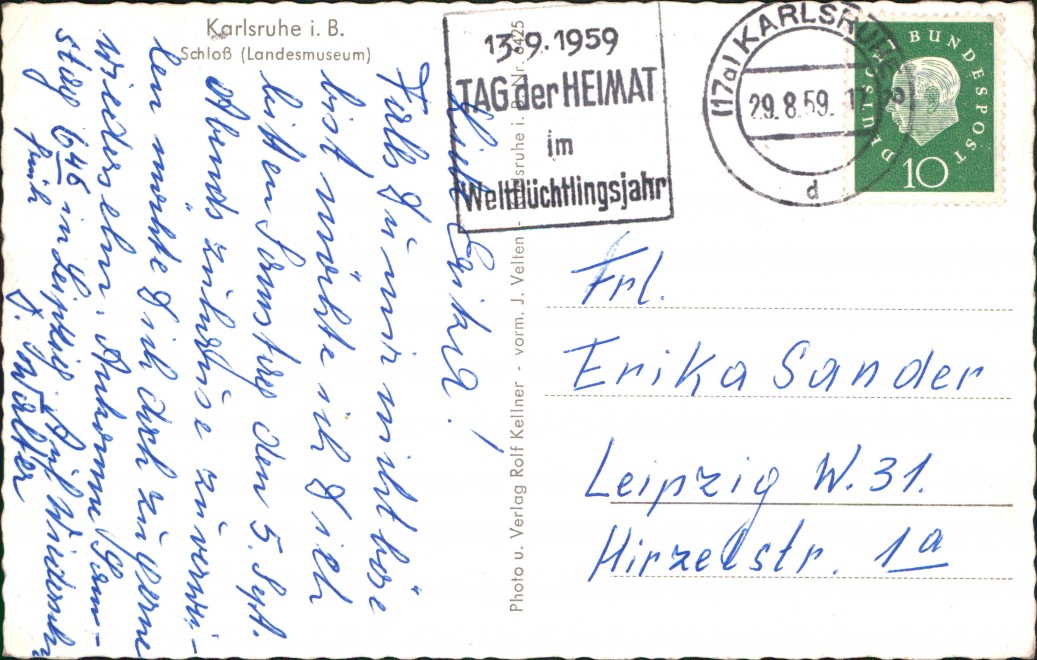 Karlsruhe i. B.
Schloß (Landesmuseum)
13.9.1959
TAG der HEIMAT
im
Weltflüchtlingsjahr
(17a) KARLSRUHE
29.8.59.
d
DEUTSCHE BUNDESPOST
10
Liebe Erika!
Falls Du mir nicht böse
bist möchte ich Dich
bitten Samstag den 5. Sept.
Abends zuhause zu verwei-
len möchte Dich doch zu gerne
wiedersehn. Ankomme Sam-
stag 6⁴⁶ in Leipzig. Auf Wiedersehn
früh
Walter
Photo u. Verlag Rolf Kellner - vorm. J. Velten - Karlsruhe i. B. Nr. 6425
Frl.
Erika Sander
Leipzig W. 31.
Hirzelstr. 1a